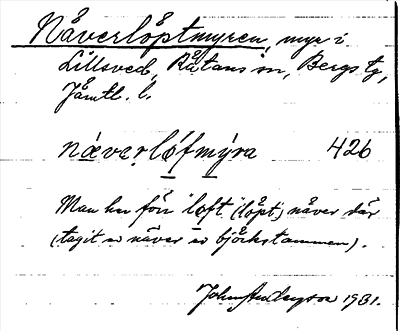 Nåverlöptmyren, myr i
Lillsved, Råtans sn, Bergs tg,
Jämtl. l.
næver lófmýra 426
Man har förr "løft" (löpt) nåver där
(tagit av näver av björkstammen).
John Anderzon 1931.